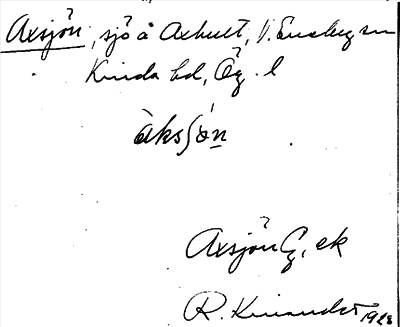 Axsjön, sjö å Axhult, V. Eneby sn
Kinda hd, Ög. l
àksʃón
Axsjön G, ek
R. Kinander 1928